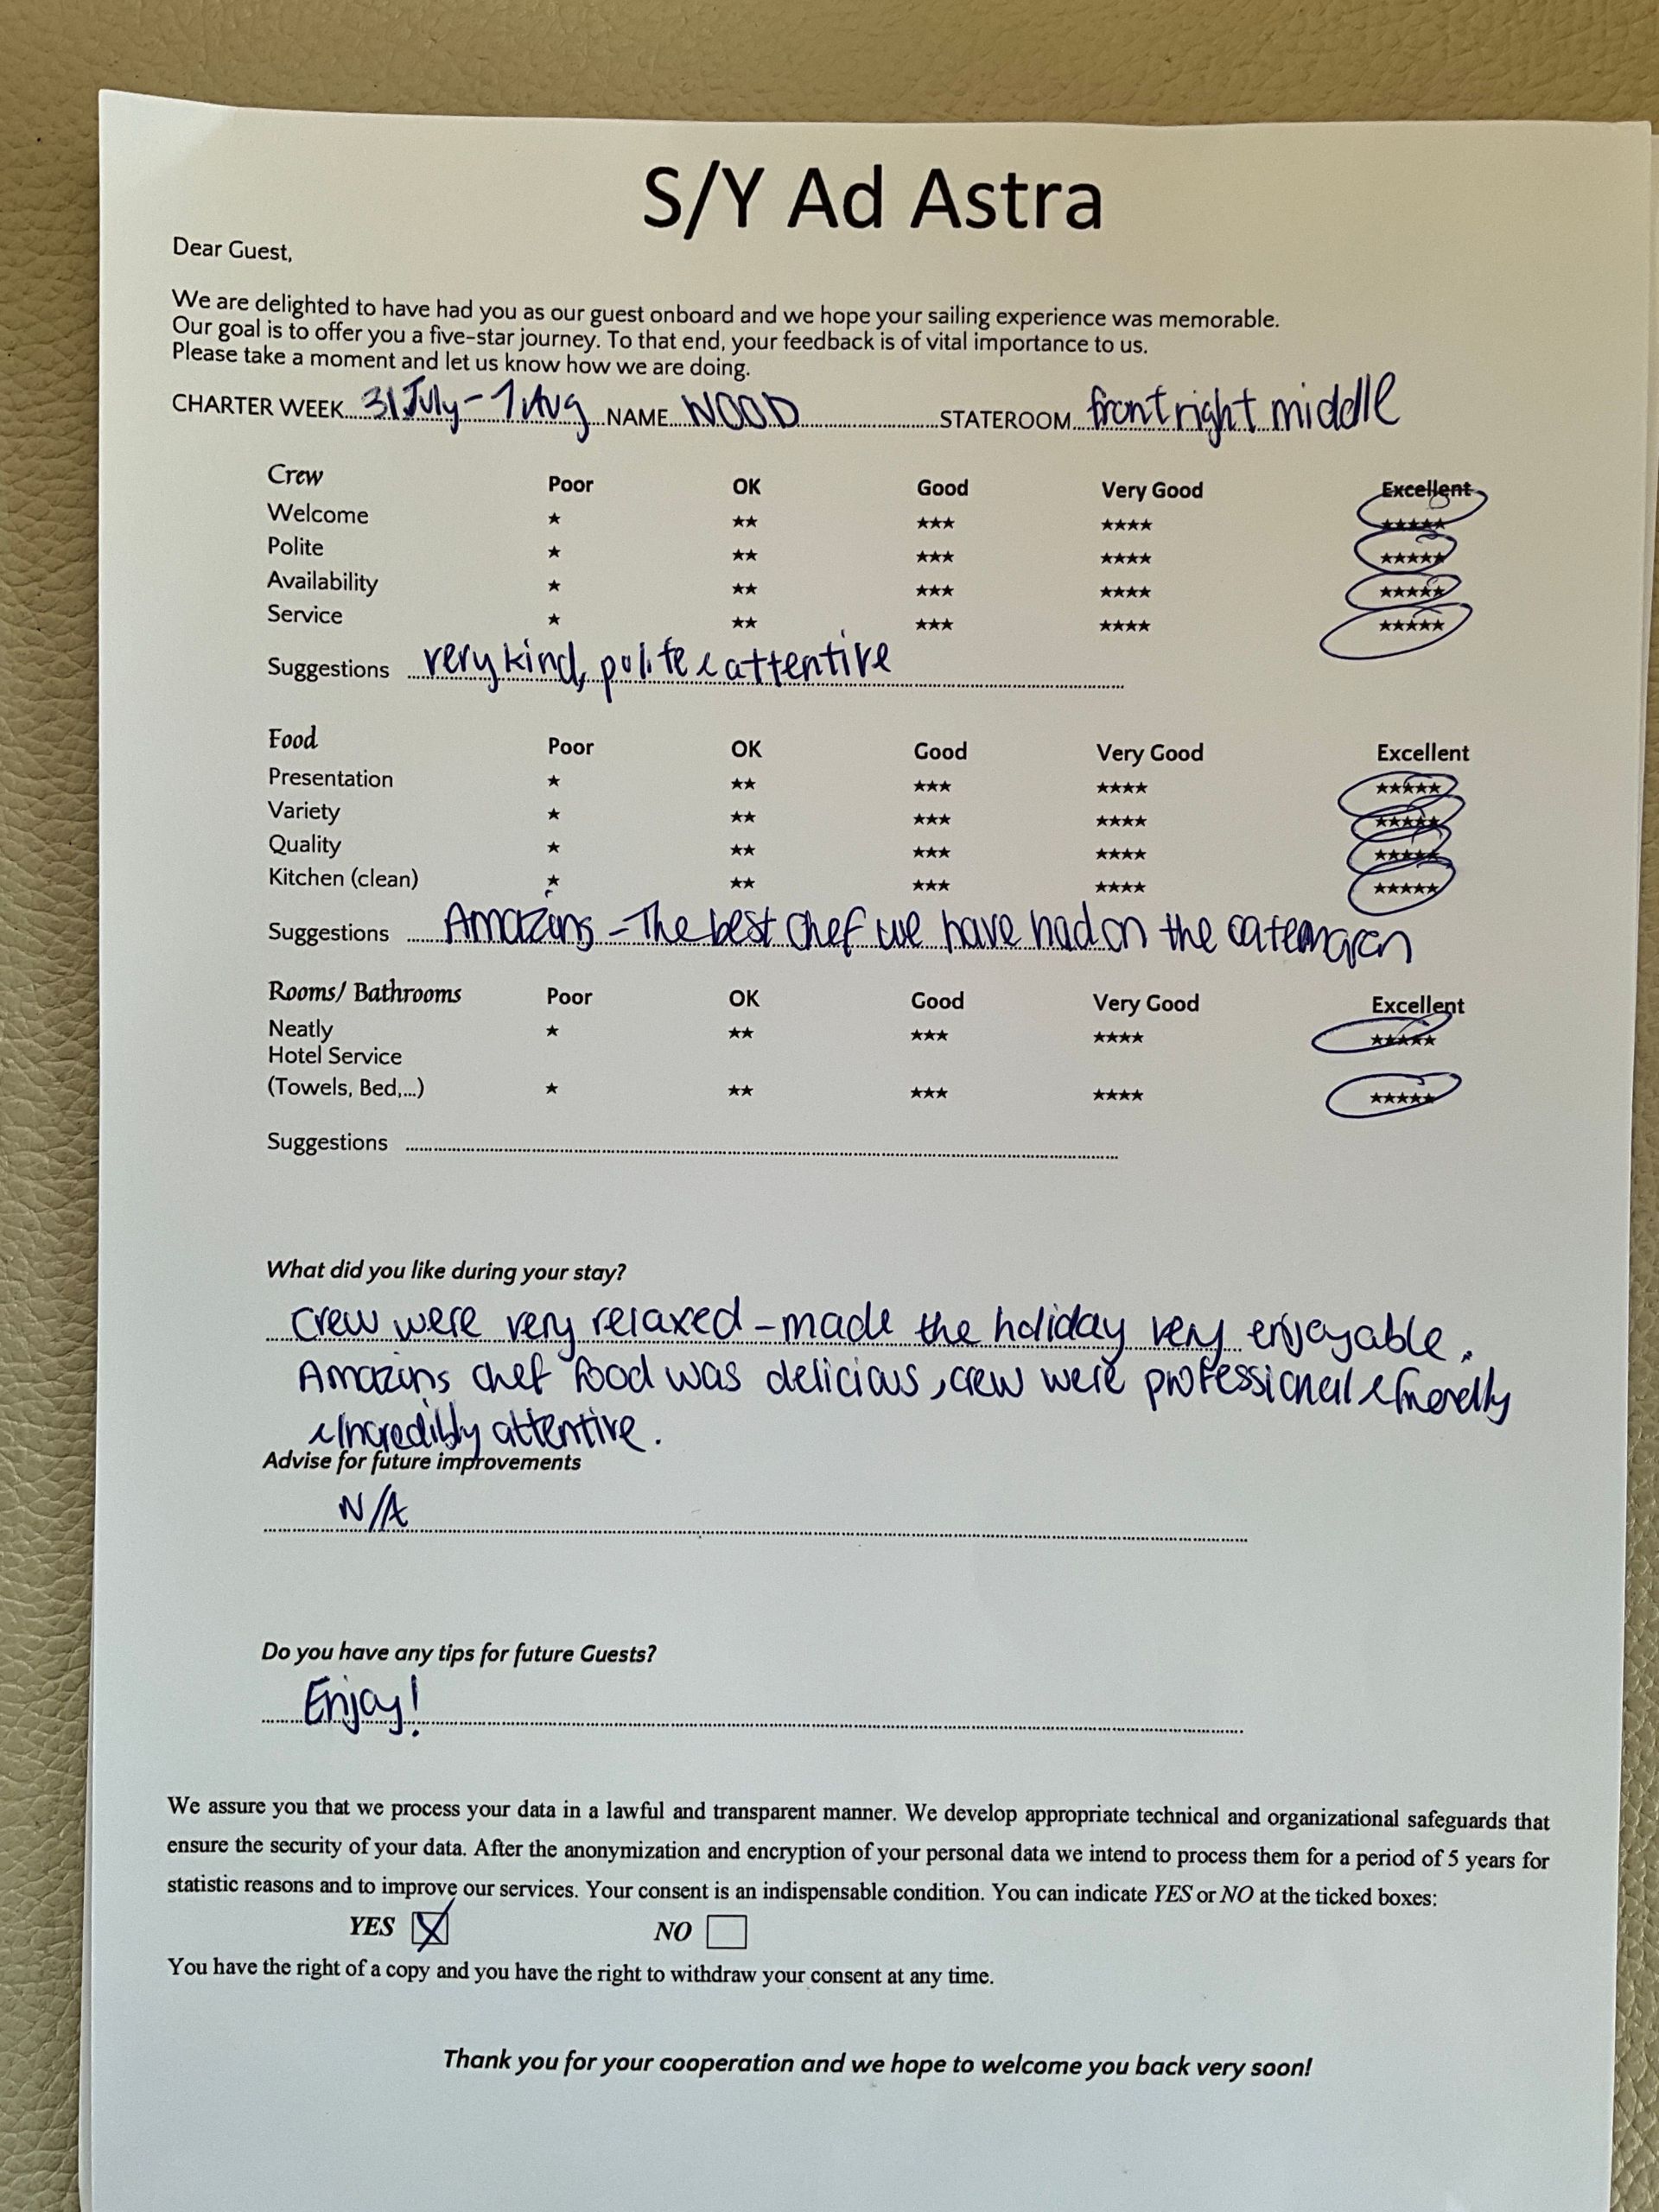 S/Y Ad Astra
Dear Guest,
We are delighted to have had you as our guest onboard and we hope your sailing experience was memorable.
Our goal is to offer you a five-star journey. To that end, your feedback is of vital importance to us.
Please take a moment and let us know how we are doing.
CHARTER WEEK 31 July - 7 Aug NAME WOOD STATEROOM front right middle
Crew Poor OK Good Very Good Excellent
Welcome ★ ★★ ★★★ ★★★★ ★★★★★
Polite ★ ★★ ★★★ ★★★★ ★★★★★
Availability ★ ★★ ★★★ ★★★★ ★★★★★
Service ★ ★★ ★★★ ★★★★ ★★★★★
Suggestions very kind, polite & attentive
Food Poor OK Good Very Good Excellent
Presentation ★ ★★ ★★★ ★★★★ ★★★★★
Variety ★ ★★ ★★★ ★★★★ ★★★★★
Quality ★ ★★ ★★★ ★★★★ ★★★★★
Kitchen (clean) ★ ★★ ★★★ ★★★★ ★★★★★
Suggestions Amazing - The best chef we have had on the
Rooms/ Bathrooms Poor OK Good Very Good Excellent
Neatly ★ ★★ ★★★ ★★★★ ★★★★★
Hotel Service
(Towels, Bed,...) ★ ★★ ★★★ ★★★★ ★★★★★
Suggestions
What did you like during your stay?
Crew were very relaxed - made the holiday very enjoyable.
Amazing chef food was delicious, crew were professional & friendly
& incredibly attentive.
Advise for future improvements
N/A
Do you have any tips for future Guests?
Enjoy!
We assure you that we process your data in a lawful and transparent manner. We develop appropriate technical and organizational safeguards that
ensure the security of your data. After the anonymization and encryption of your personal data we intend to process them for a period of 5 years for
statistic reasons and to improve our services. Your consent is an indispensable condition. You can indicate YES or NO at the ticked boxes:
YES ☒ NO ☐
You have the right of a copy and you have the right to withdraw your consent at any time.
Thank you for your cooperation and we hope to welcome you back very soon!